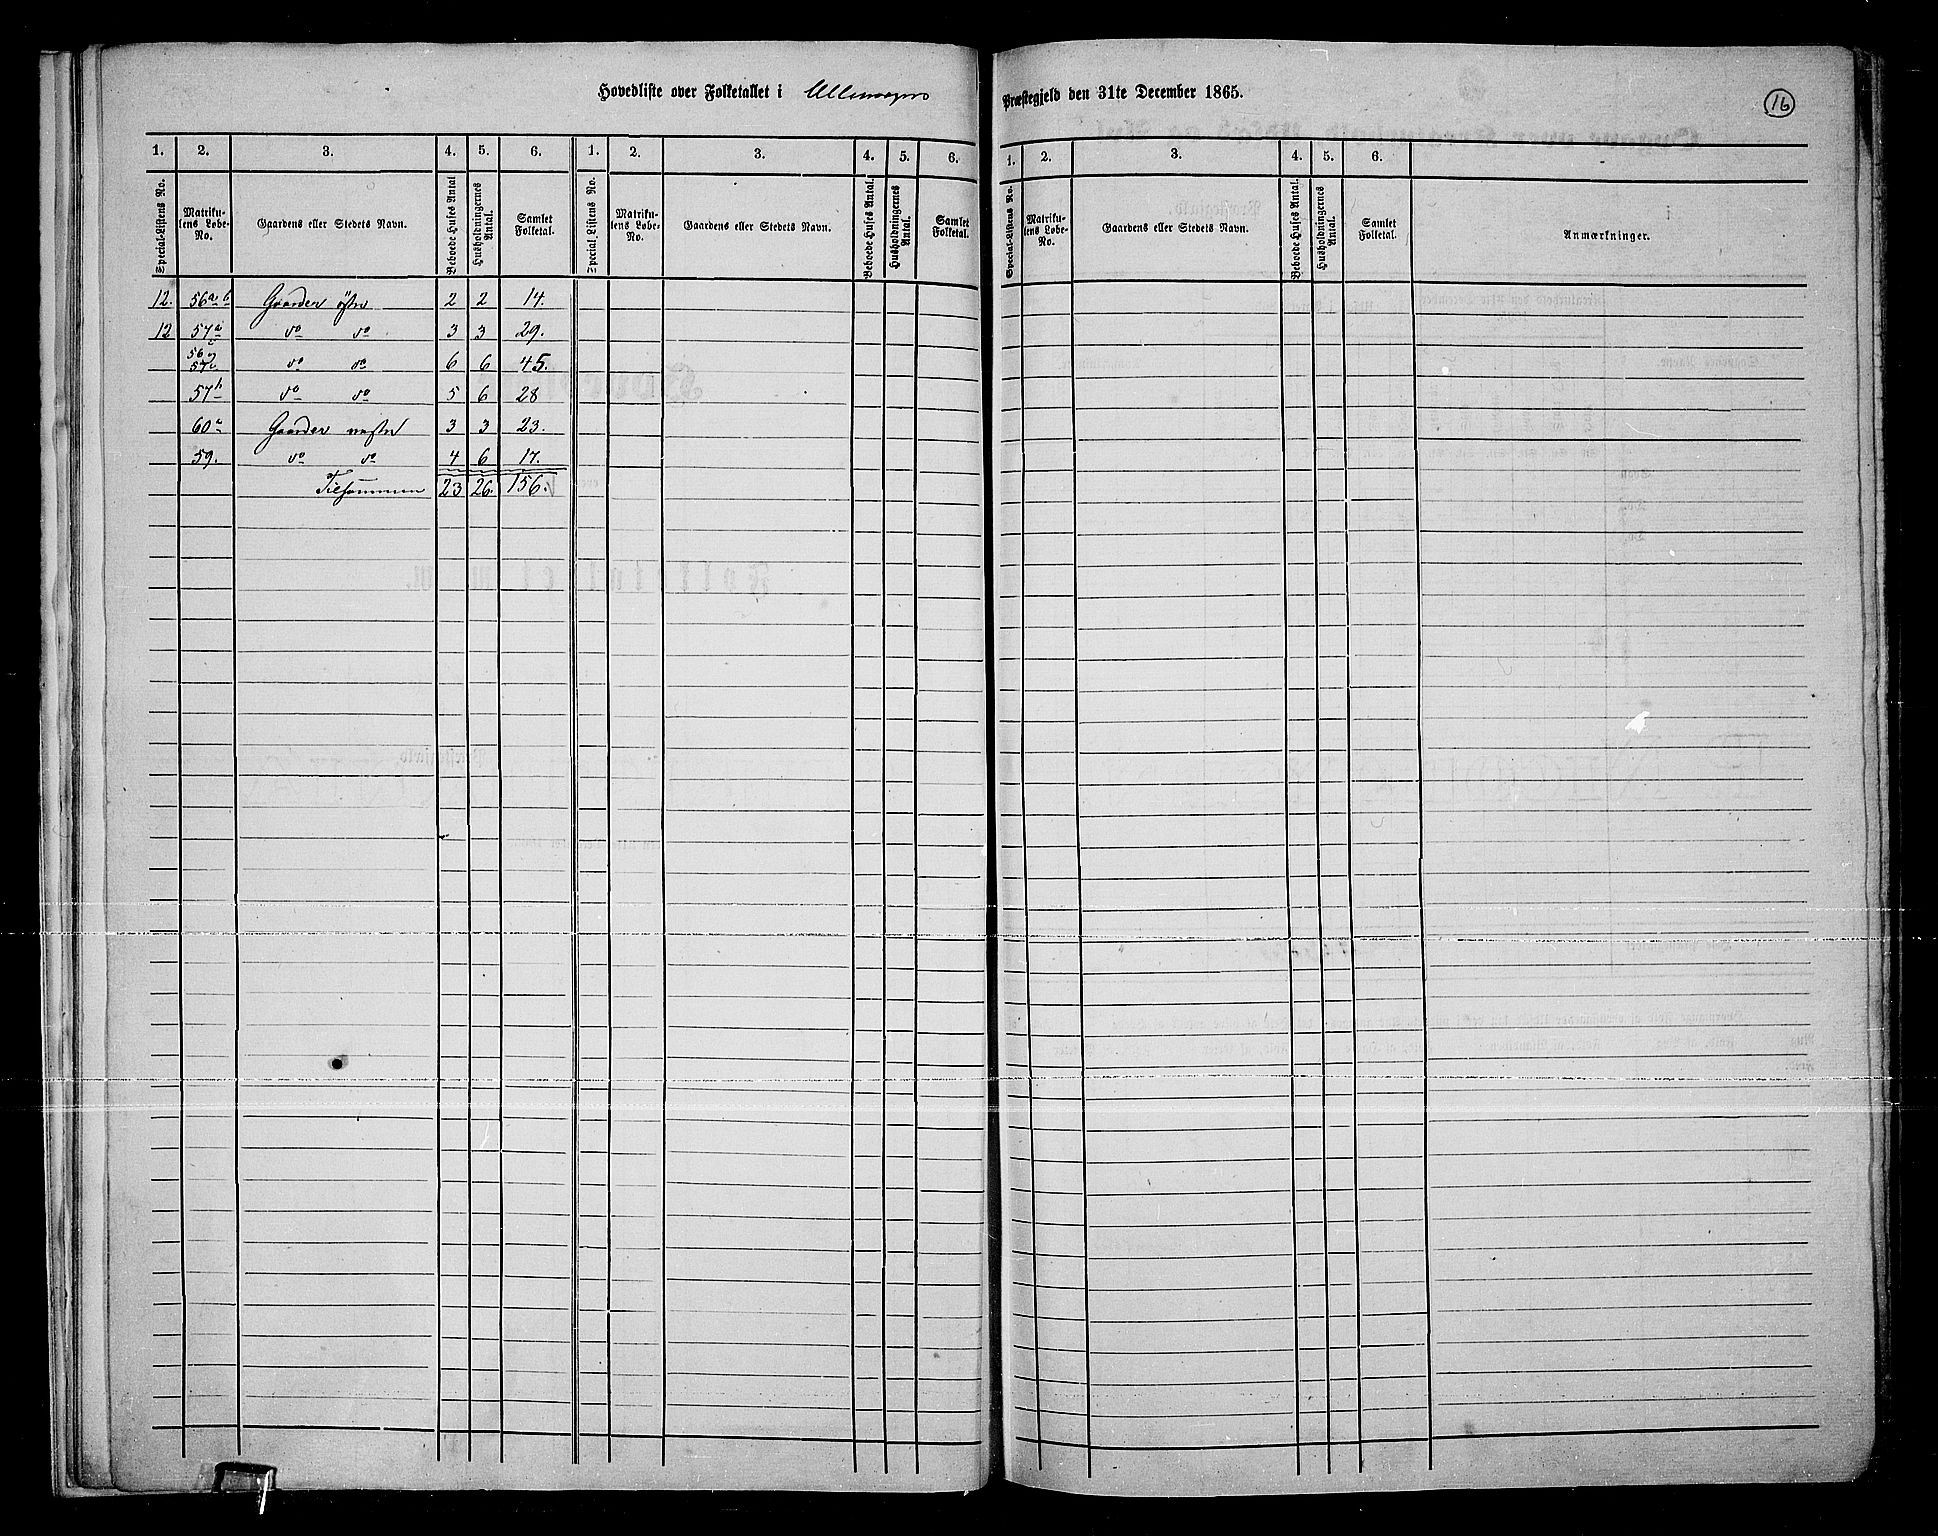 Hovedliste over Folketallet i Ullensager Præstegjeld den 31te December 1865.
16
1. 2. 3. 4. 5. 6. 1. 2. 3. 4. 5. 6. 1. 2. 3. 4. 5. 6.
Special-Listens No. Matrikulens Løbe-No. Gaardens eller Stedets Navn. Beboede Huses Antal Husholdningernes Antal. Samlet Folketal. Special-Listens No. Matrikulens Løbe-No. Gaardens eller Stedets Navn. Beboede Huses Antal. Husholdningernes Antal. Samlet Folketal. Special-Listens No. Matrikulens Løbe-No. Gaardens eller Stedets Navn. Beboede Huses Antal. Husholdningernes Antal. Samlet Folketal. Anmærkninger.
12. 56a b Gaarder østre 2 2 14.
12 57a do do 3 3 29.
56 57 do do 6 6 45.
57b do do 5 6 28
60a Gaarder vestre 3 3 23.
59. do do 4 6 17.
Tilsammen 23 26. 156.